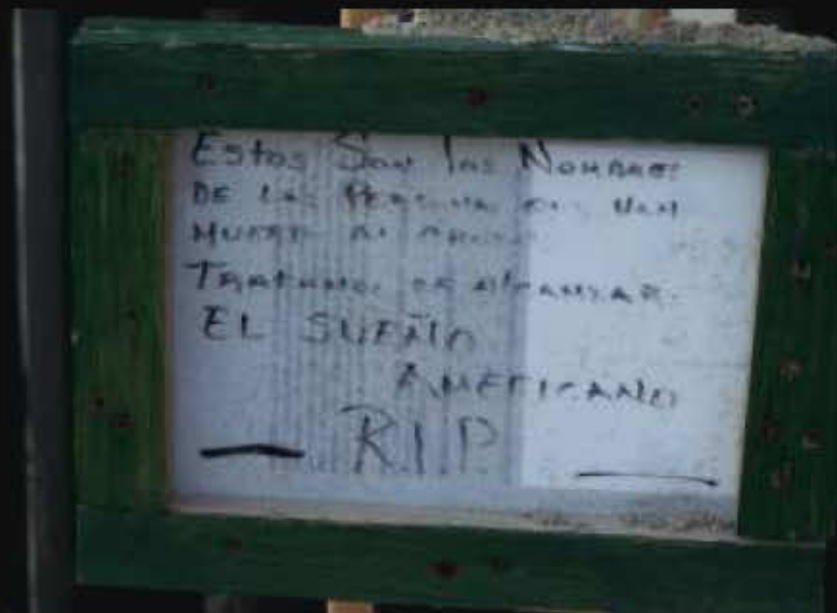 Estos Son los NOMBRES
DE LAS PERSONA QUE HAN
MUERTO AL
TRATANDO DE ALCANSAR
EL SUEÑO
AMERICANO
R.I.P